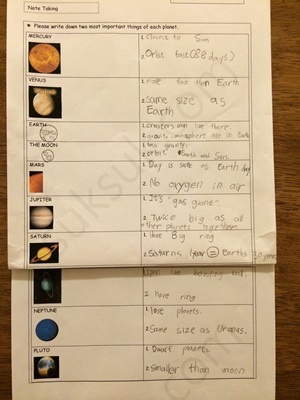 Note Taking
★ Please write down two most important things of each planet.
MERCURY
1. closest to Sun
2. Orbit fast (88 days)
VENUS
1. more fast than Earth
2. Same size as
Earth
EARTH
1. creatures can live there.
2. atmosphere are in Earth
THE MOON
1. less gravity
2. orbit Earth and Sun
MARS
1. Day is same as Earth day
2. No oxygen in air
JUPITER
1. It's "gas giant"
2. Twice big as all
other planets together
SATURN
1. Have Big ring
2. Saturns 1year = Earths
1. like bowling ball.
2. have ring
NEPTUNE
1. last planets.
2. Same size as Uranus.
PLUTO
1. Dwarf planets
2. Smaller than moon